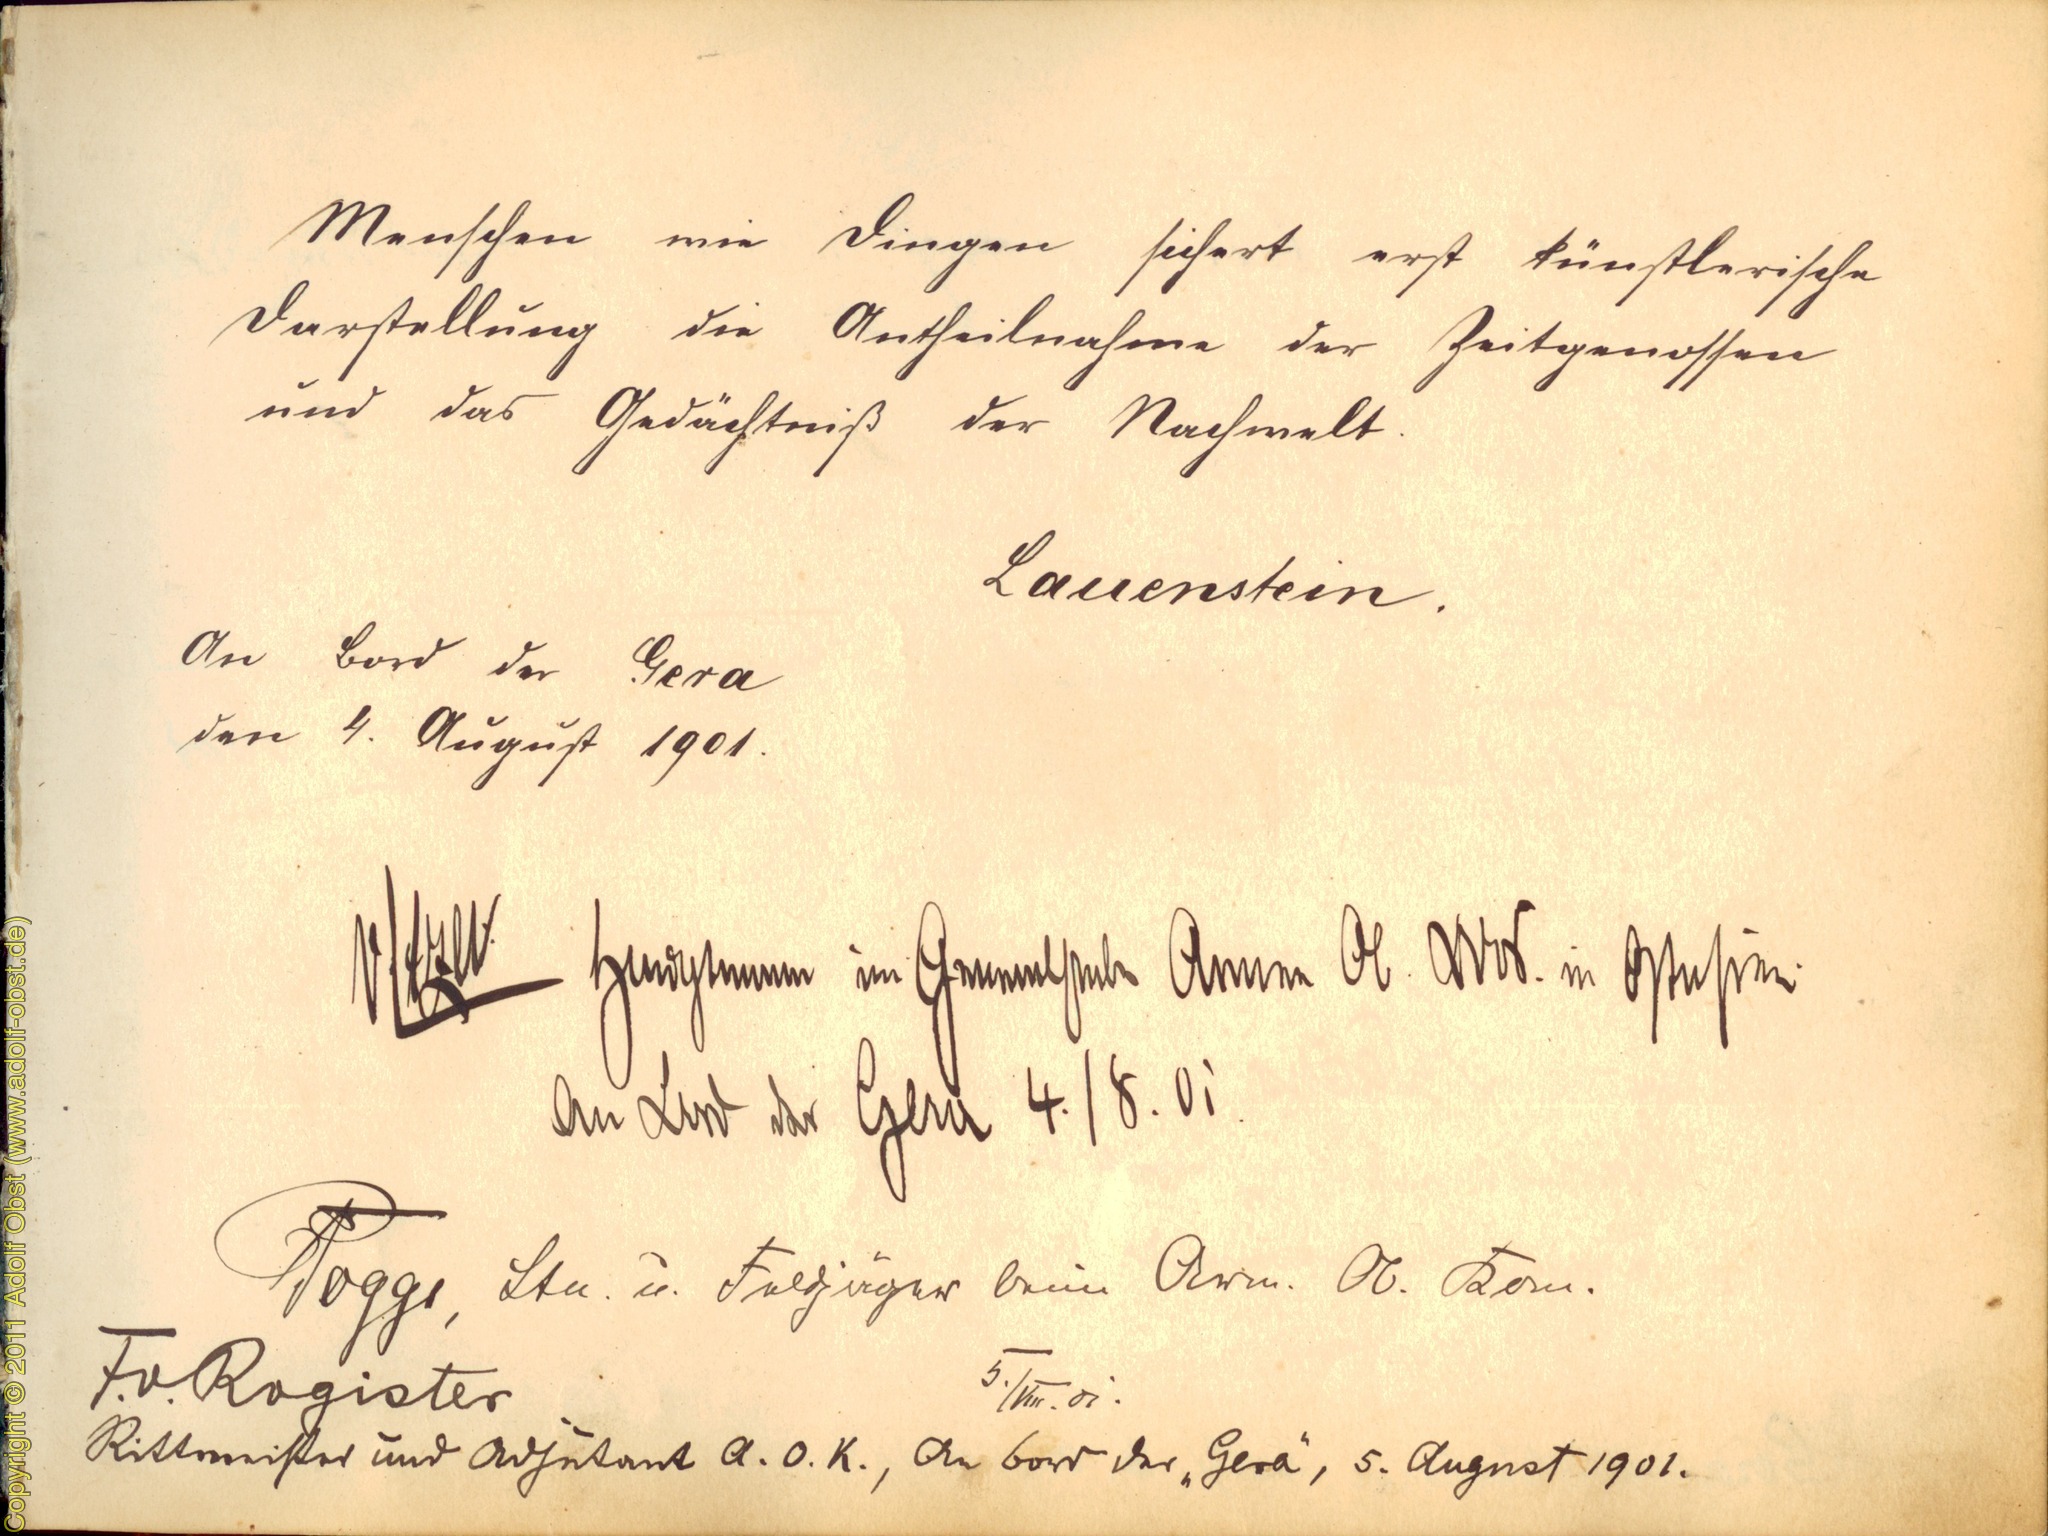 Menschen wie Dingen sichert erst künstlerische
Darstellung die Antheilnahme der Zeitgenossen
und das Gedächtniß der Nachwelt.
Lauenstein.
An Bord der Gera
den 4. August 1901.
Hauptmann im Generalstabe Armee Ob. Kdos. in Ostasien.
An Bord der Gera 4./8.01.
Pogge, Ltn. u. Feldjäger beim Arm. Ob. Kom.
5./VIII.01.
F.v.Rogister
Rittmeister und Adjutant A.O.K., An bord der „Gera", 5. August 1901.
Copyright © 2011 Adolf Obst (www.adolf-obst.de)